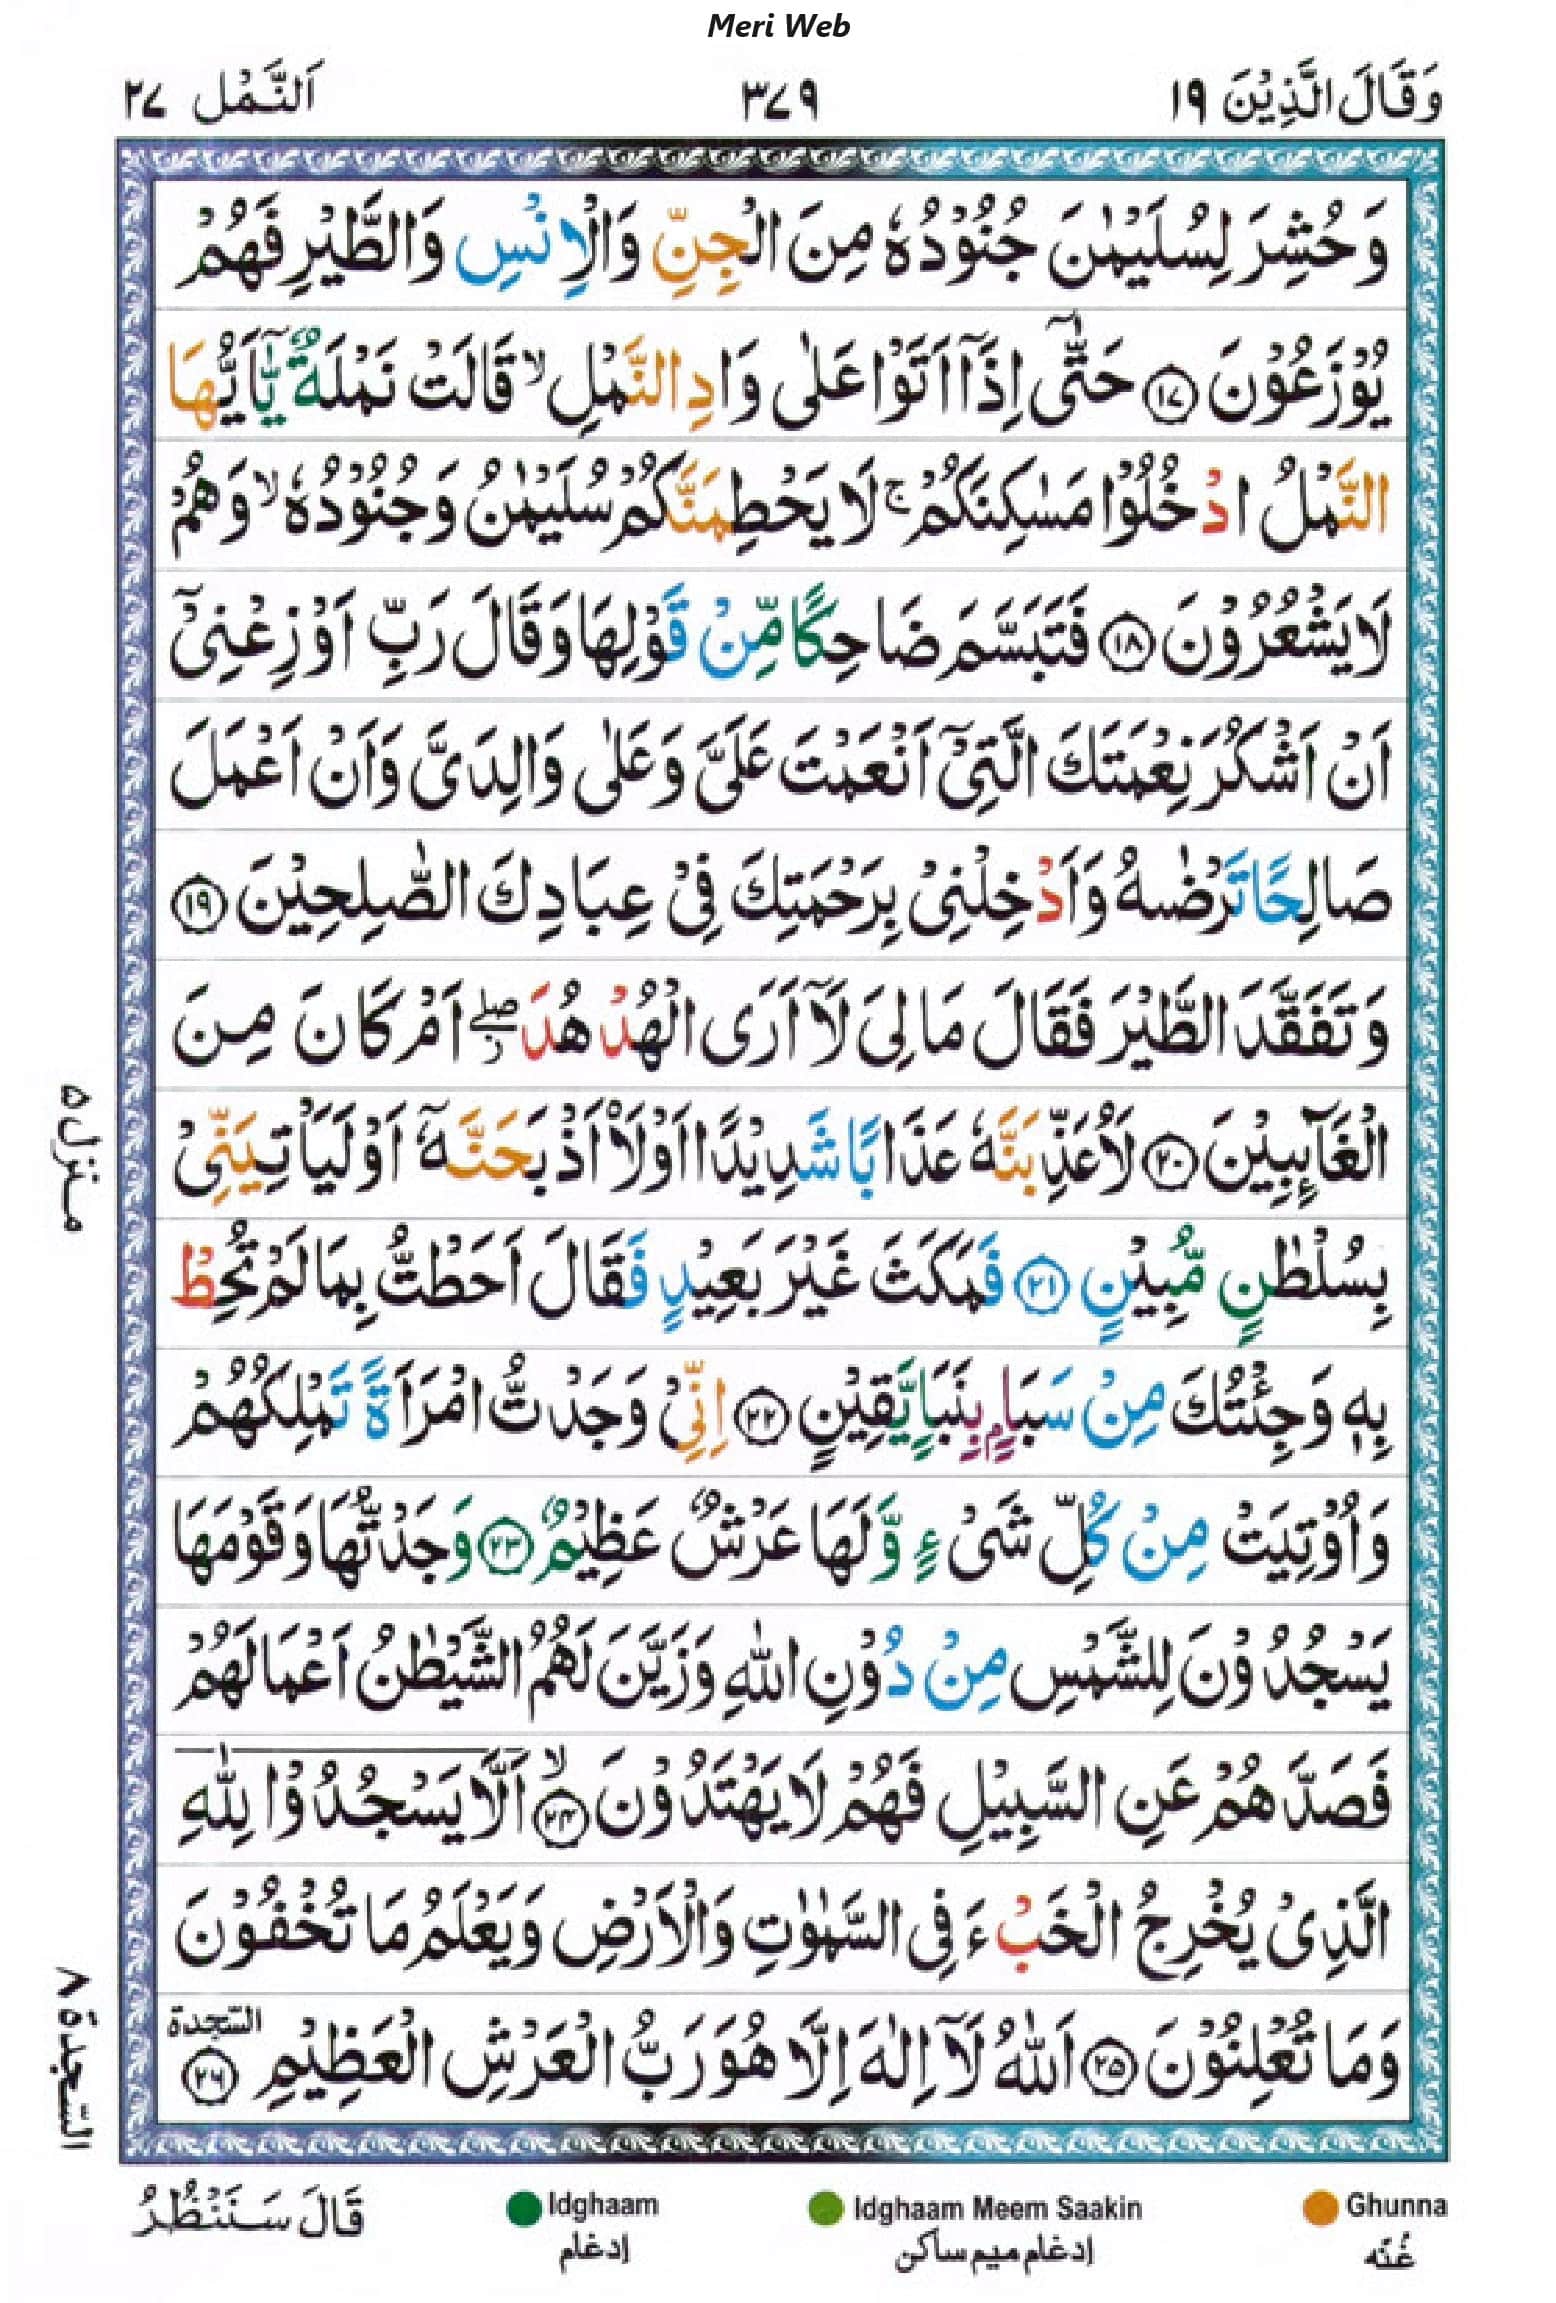 Meri Web
وَقَالَ الَّذِيْنَ ١٩
٣٧٩
اَلنَّمْل ٢٧
وَحُشِرَ لِسُلَيْمٰنَ جُنُوْدُهٗ مِنَ الْجِنِّ وَالْاِنْسِ وَالطَّيْرِ فَهُمْ
يُوْزَعُوْنَ ١٧ حَتّٰۤى اِذَاۤ اَتَوْا عَلٰى وَادِ النَّمْلِۙ قَالَتْ نَمْلَةٌ يّٰۤاَيُّهَا
النَّمْلُ ادْخُلُوْا مَسٰكِنَكُمْۚ لَا يَحْطِمَنَّكُمْ سُلَيْمٰنُ وَجُنُوْدُهٗۙ وَهُمْ
لَا يَشْعُرُوْنَ ١٨ فَتَبَسَّمَ ضَاحِكًا مِّنْ قَوْلِهَا وَقَالَ رَبِّ اَوْزِعْنِيْۤ
اَنْ اَشْكُرَ نِعْمَتَكَ الَّتِيْۤ اَنْعَمْتَ عَلَيَّ وَعَلٰى وَالِدَيَّ وَاَنْ اَعْمَلَ
صَالِحًا تَرْضٰىهُ وَاَدْخِلْنِيْ بِرَحْمَتِكَ فِيْ عِبَادِكَ الصّٰلِحِيْنَ ١٩
وَتَفَقَّدَ الطَّيْرَ فَقَالَ مَا لِيَ لَاۤ اَرَى الْهُدْهُدَۖ اَمْ كَانَ مِنَ
الْغَآئِبِيْنَ ٢٠ لَاُعَذِّبَنَّهٗ عَذَابًا شَدِيْدًا اَوْ لَاۡاَذْبَحَنَّهٗۤ اَوْ لَيَاْتِيَنِّيْ
بِسُلْطٰنٍ مُّبِيْنٍ ٢١ فَمَكَثَ غَيْرَ بَعِيْدٍ فَقَالَ اَحَطْتُّ بِمَا لَمْ تُحِطْ
بِهٖ وَجِئْتُكَ مِنْ سَبَاٍۭ بِنَبَاٍ يَّقِيْنٍ ٢٢ اِنِّيْ وَجَدْتُّ امْرَاَةً تَمْلِكُهُمْ
وَاُوْتِيَتْ مِنْ كُلِّ شَيْءٍ وَّلَهَا عَرْشٌ عَظِيْمٌ ٢٣ وَجَدْتُّهَا وَقَوْمَهَا
يَسْجُدُوْنَ لِلشَّمْسِ مِنْ دُوْنِ اللّٰهِ وَزَيَّنَ لَهُمُ الشَّيْطٰنُ اَعْمَالَهُمْ
فَصَدَّهُمْ عَنِ السَّبِيْلِ فَهُمْ لَا يَهْتَدُوْنَۙ ٢٤ اَلَّا يَسْجُدُوْا لِلّٰهِ
الَّذِيْ يُخْرِجُ الْخَبْءَ فِي السَّمٰوٰتِ وَالْاَرْضِ وَيَعْلَمُ مَا تُخْفُوْنَ
وَمَا تُعْلِنُوْنَ ٢٥ اَللّٰهُ لَاۤ اِلٰهَ اِلَّا هُوَ رَبُّ الْعَرْشِ الْعَظِيْمِ ٢٦ السّجدة
منزل ٥
السّجدة ٨
Ghunna
غُنّه
Idghaam Meem Saakin
إدغام ميم ساكن
Idghaam
إدغام
قَالَ سَنَنْظُرُ